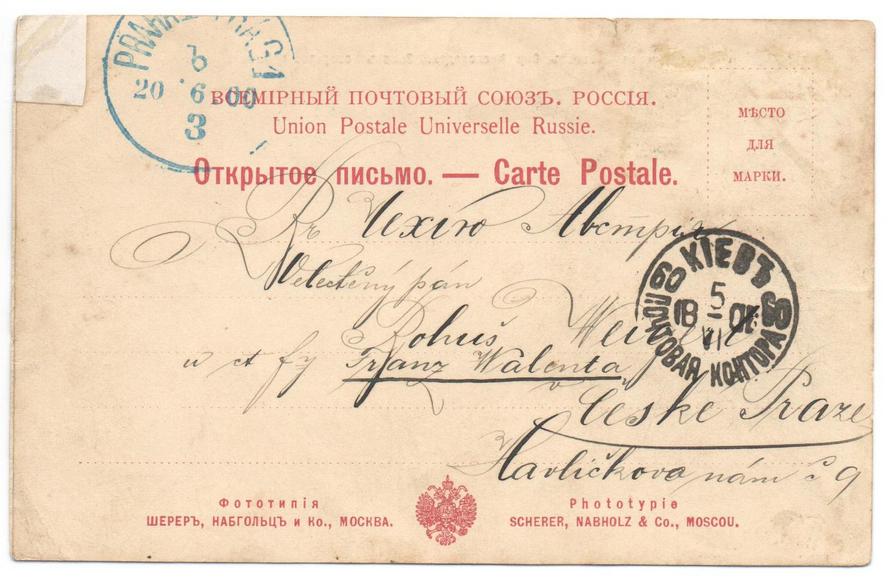 20 6 00
3
ВСЕМІРНЫЙ ПОЧТОВЫЙ СОЮЗЪ. РОССІЯ.
Union Postale Universelle Russie.
МѢСТО
ДЛЯ
МАРКИ.
Открытое письмо. — Carte Postale.
Въ Чехію Австрія
Velectěný pán
Bohuš
Franz Walenta
v České Praze
Havlíčkova nám č 9
КІЕВЪ
5
VI
ПОЧТОВАЯ КОНТОРА
Фототипія
ШЕРЕРЪ, НАБГОЛЬЦЪ и Ко., МОСКВА.
Phototypie
SCHERER, NABHOLZ & Co., MOSCOU.